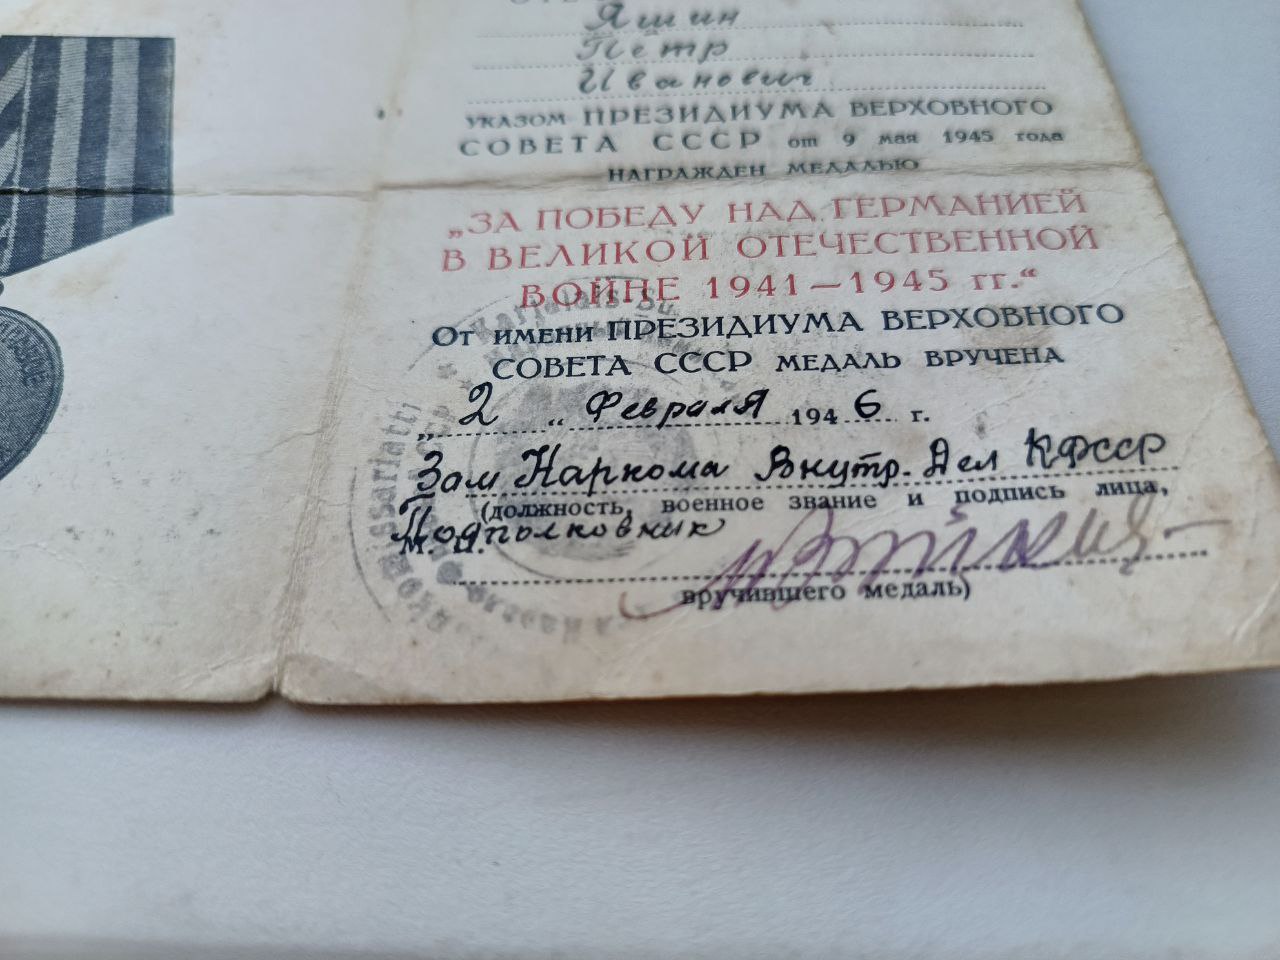 Яшин
Пётр
Иванович
УКАЗОМ ПРЕЗИДИУМА ВЕРХОВНОГО
СОВЕТА СССР от 9 мая 1945 года
НАГРАЖДЕН МЕДАЛЬЮ
„ЗА ПОБЕДУ НАД ГЕРМАНИЕЙ
В ВЕЛИКОЙ ОТЕЧЕСТВЕННОЙ
ВОЙНЕ 1941—1945 гг.“
От имени ПРЕЗИДИУМА ВЕРХОВНОГО
СОВЕТА СССР МЕДАЛЬ ВРУЧЕНА
„ 2 „ Февраля 1946 г.
Зам Наркома Внутр. Дел КФССР
(должность, военное звание и подпись лица,
Подполковник
М. П.
вручившего медаль)